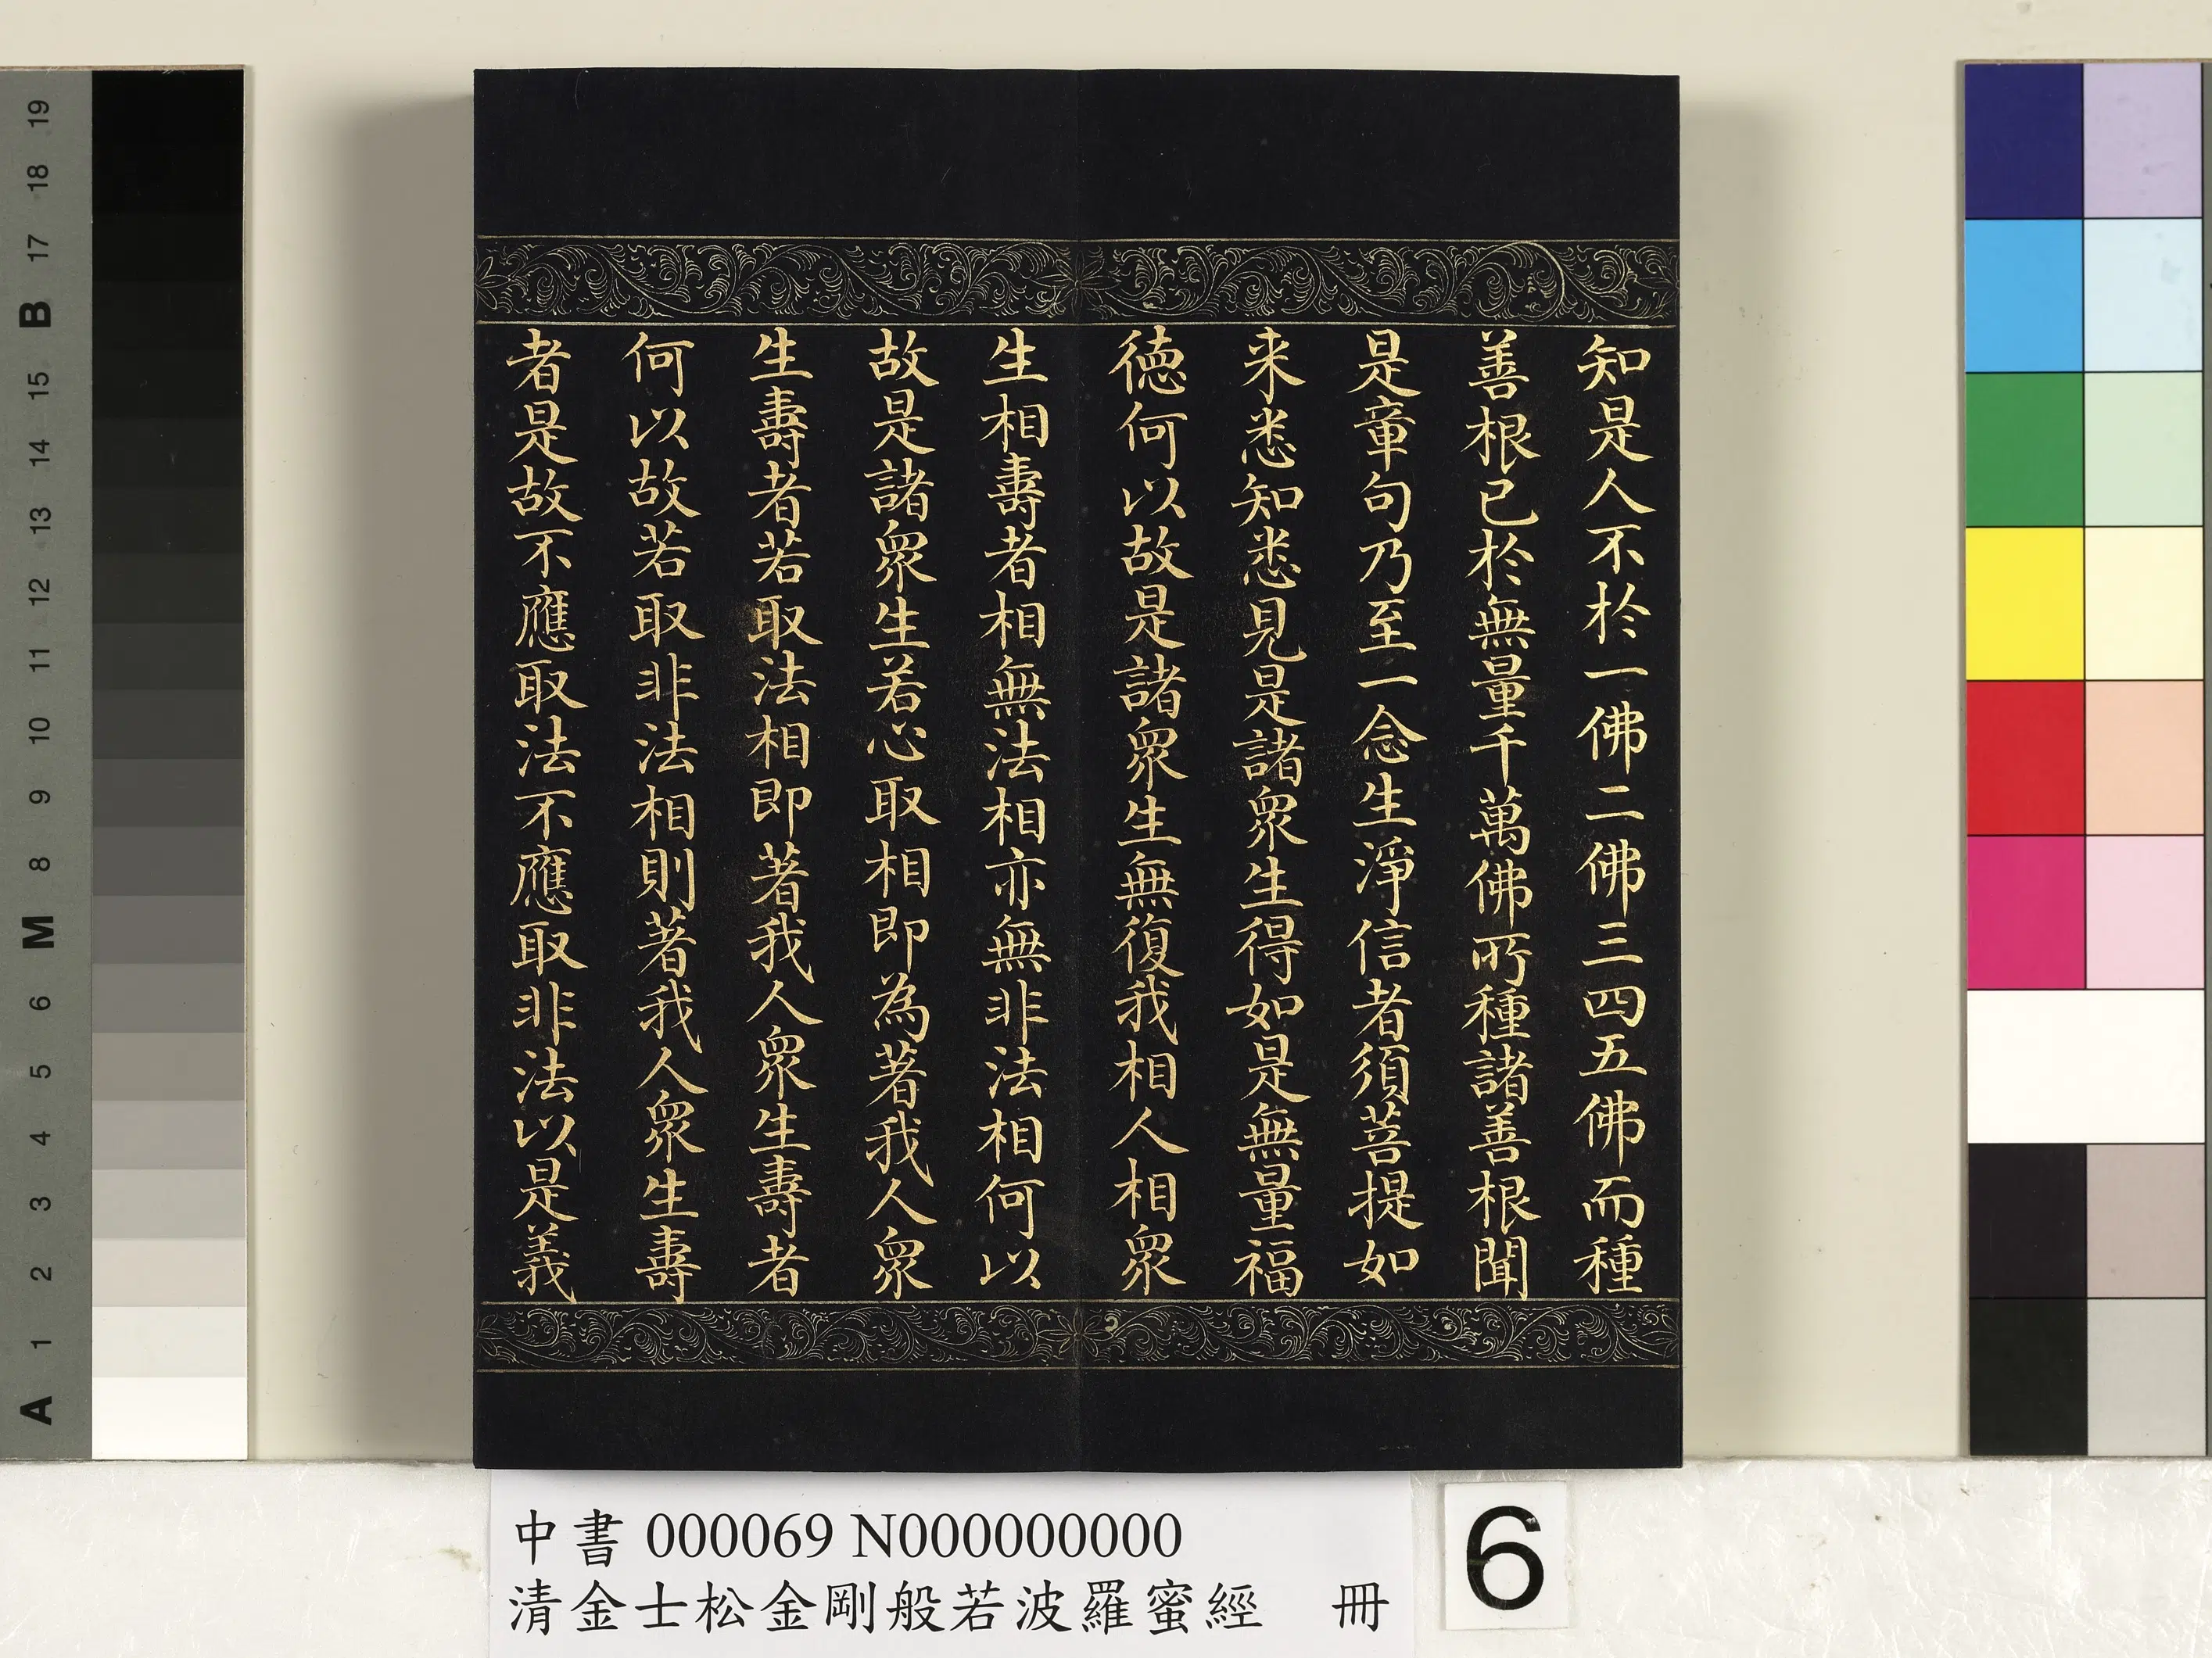 知是人不於一佛二佛三四五佛而種
善根已於無量千萬佛所種諸善根聞
是章句乃至一念生淨信者須菩提如
来悉知悉見是諸衆生得如是無量福
德何以故是諸衆生無復我相人相衆
生相壽者相無法相亦無非法相何以
故是諸衆生若心取相即為著我人衆
生壽者若取法相即著我人衆生壽者
何以故若取非法相則著我人衆生壽
者是故不應取法不應取非法以是義
中書 000069 N000000000
清金士松金剛般若波羅蜜經 冊
6
A 1 2 3 4 5 6 M 8 9 10 11 12 13 14 15 B 17 18 19